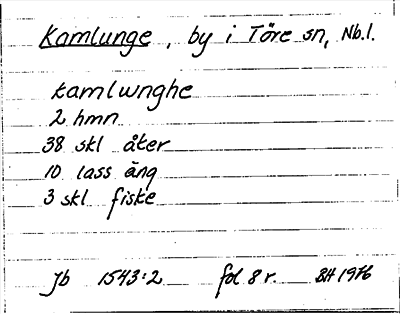 Kamlunge, by i Töre sn, Nb.l.
kamlwnghe
2 hmn
38 skl åker
10 lass äng
3 skl fiske
Jb 1543:2 fol 8 r. BH 1976